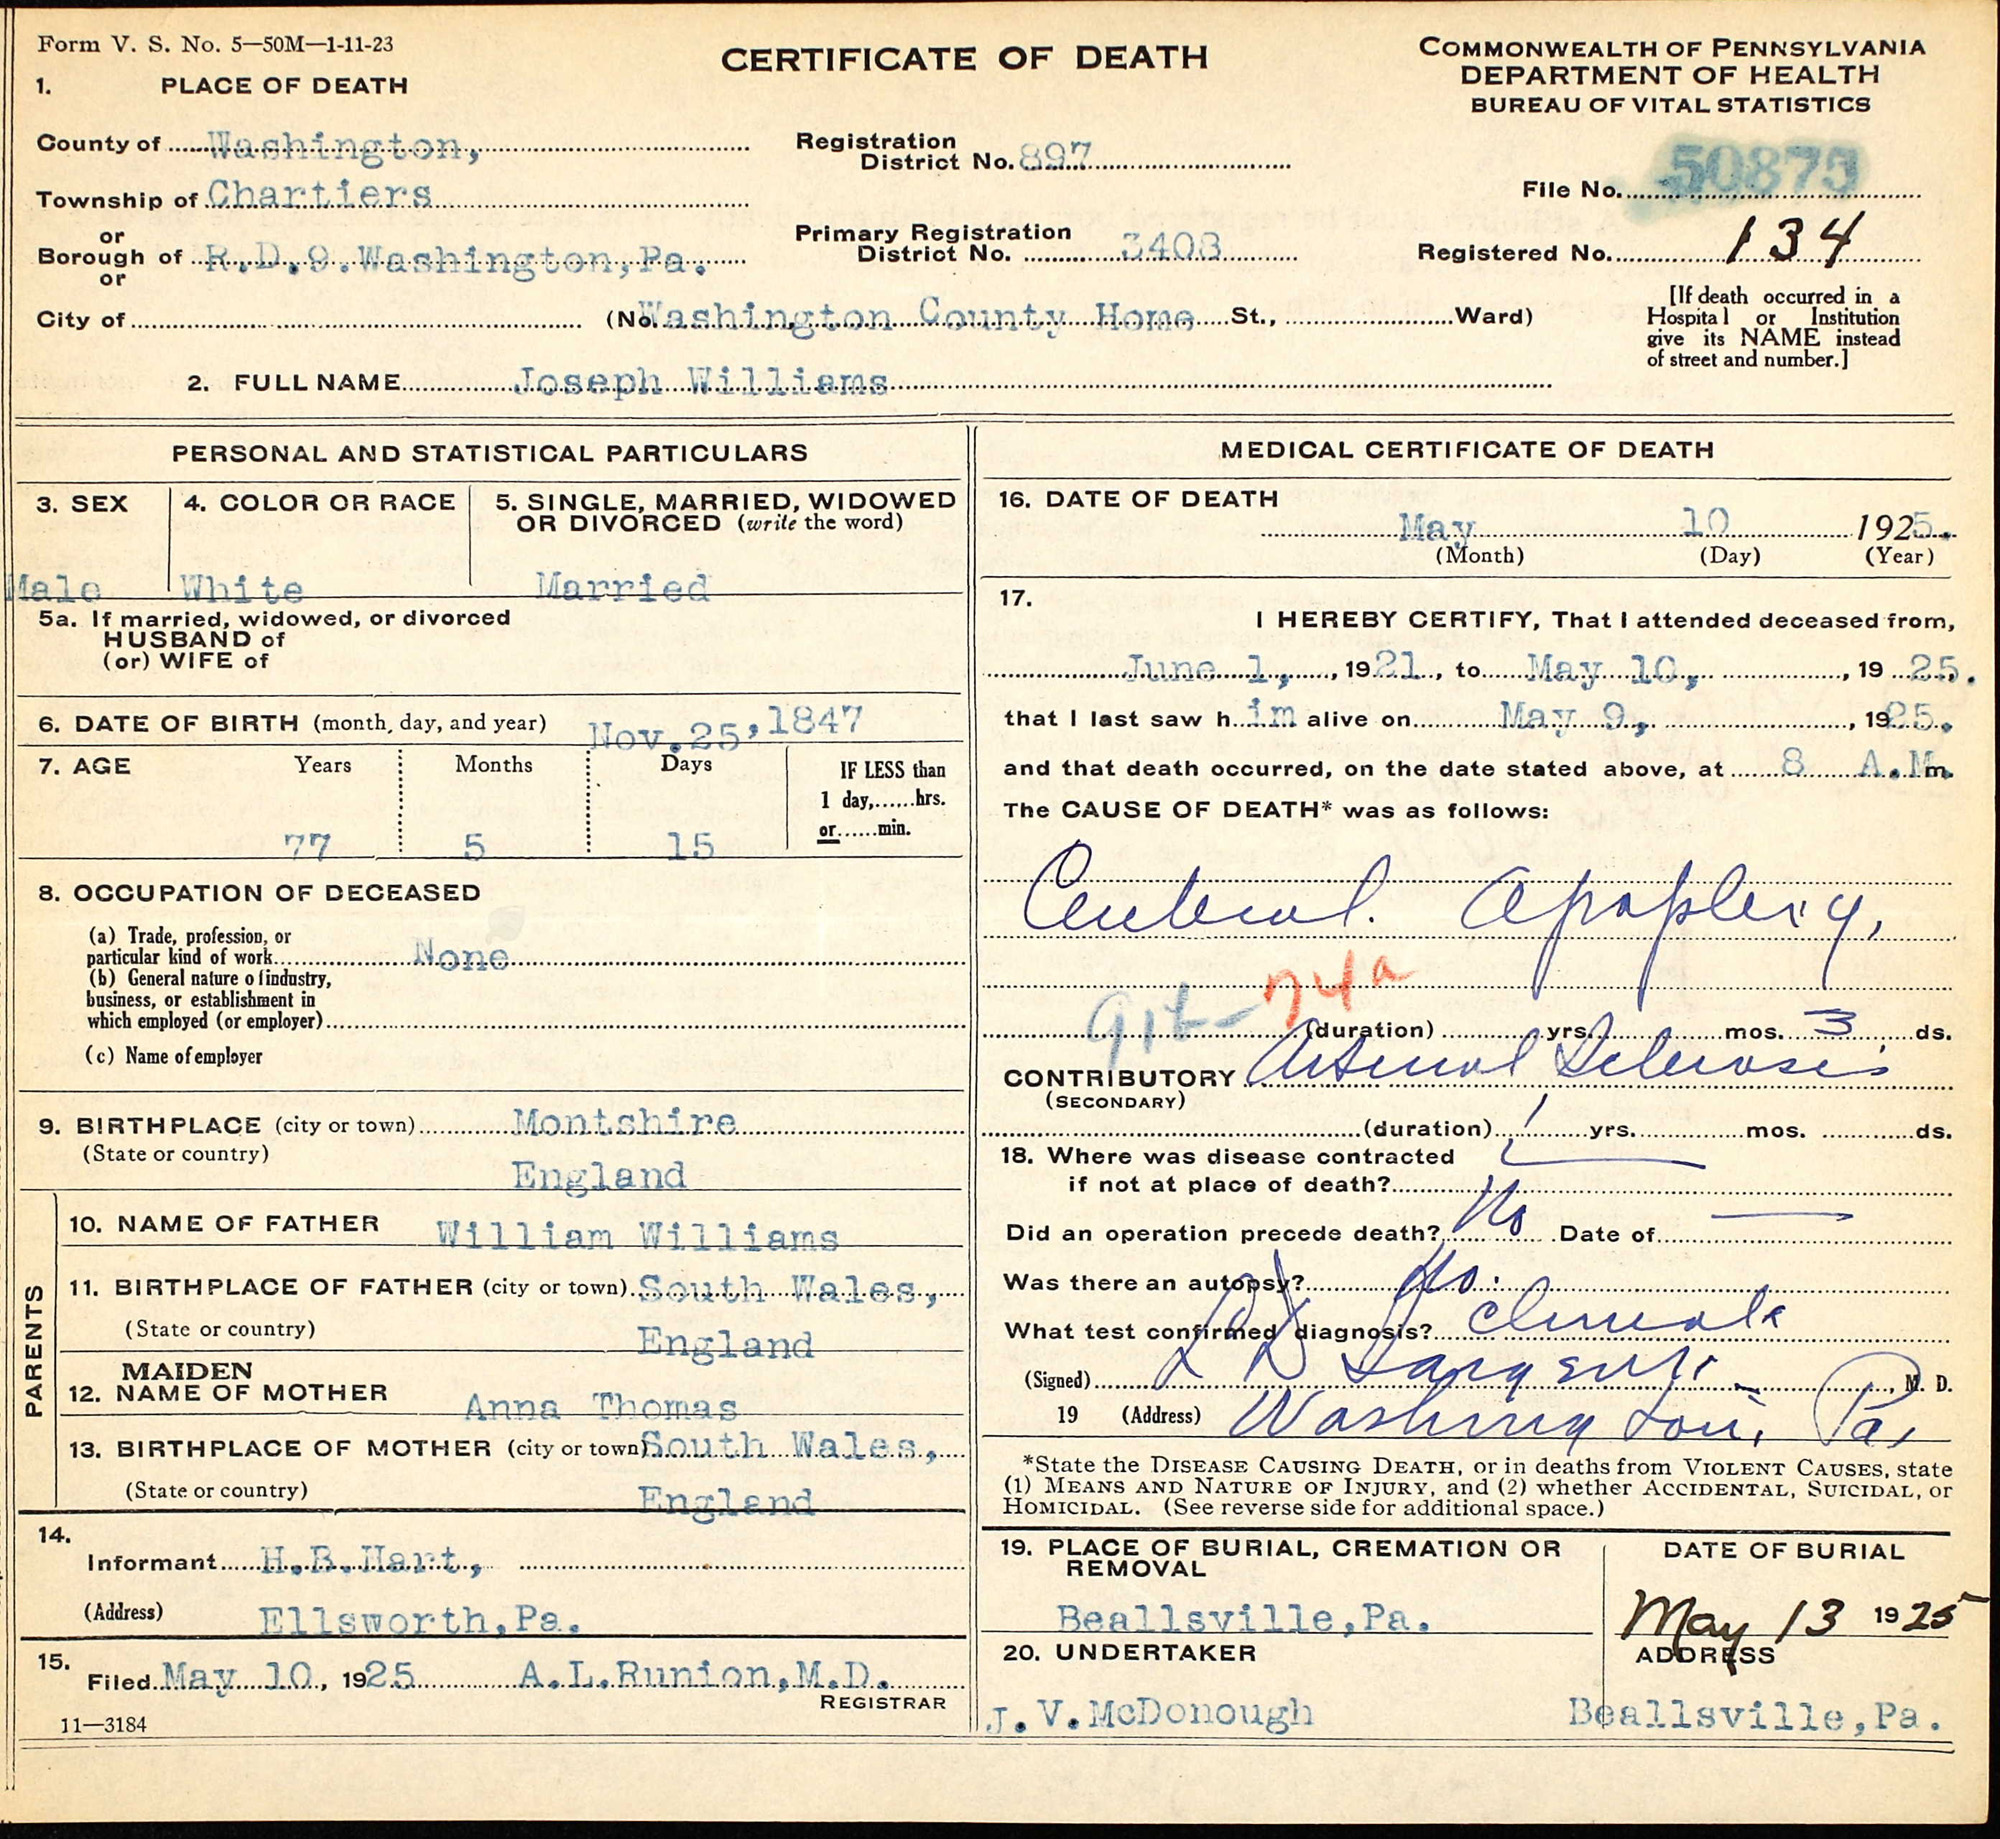 Form V. S. No. 5—50M—1-11-23
CERTIFICATE OF DEATH
COMMONWEALTH OF PENNSYLVANIA
DEPARTMENT OF HEALTH
BUREAU OF VITAL STATISTICS
1. PLACE OF DEATH
County of Washington,
Registration District No. 897
File No. 50875
Township of Chartiers
or
Borough of R.D.9.Washington,Pa.
or
Primary Registration District No. 3408
Registered No. 134
City of (No. Washington County Home St., Ward)
[If death occurred in a
Hospital or Institution
give its NAME instead
of street and number.]
2. FULL NAME Joseph Williams
PERSONAL AND STATISTICAL PARTICULARS
3. SEX
Male
4. COLOR OR RACE
White
5. SINGLE, MARRIED, WIDOWED
OR DIVORCED (write the word)
Married
5a. If married, widowed, or divorced
HUSBAND of
(or) WIFE of
6. DATE OF BIRTH (month, day, and year) Nov.25, 1847
7. AGE Years Months Days
77 5 15
IF LESS than
1 day,......hrs.
or......min.
8. OCCUPATION OF DECEASED
(a) Trade, profession, or
particular kind of work None
(b) General nature of industry,
business, or establishment in
which employed (or employer)
(c) Name of employer
9. BIRTHPLACE (city or town) Montshire
(State or country)
England
PARENTS
10. NAME OF FATHER William Williams
11. BIRTHPLACE OF FATHER (city or town) South Wales,
(State or country) England
12. MAIDEN NAME OF MOTHER Anna Thomas
13. BIRTHPLACE OF MOTHER (city or town) South Wales,
(State or country) England
14.
Informant H.B.Hart,
(Address) Ellsworth,Pa.
15.
Filed May 10, 1925 A.L.Runion,M.D.
REGISTRAR
11—3184
MEDICAL CERTIFICATE OF DEATH
16. DATE OF DEATH
May 10 1925.
(Month) (Day) (Year)
17.
I HEREBY CERTIFY, That I attended deceased from,
June 1, , 1921, to May 10, , 1925.
that I last saw him alive on May 9, , 1925.
and that death occurred, on the date stated above, at 8 A.M. m.
The CAUSE OF DEATH* was as follows:
Cerebral. Apoplexy,
74a
(duration) yrs. mos. 3 ds.
CONTRIBUTORY Arterial Sclerosis
(SECONDARY)
(duration) 1 yrs. mos. ds.
18. Where was disease contracted
if not at place of death?
Did an operation precede death? No Date of
Was there an autopsy? No.
What test confirmed diagnosis? Clinical
(Signed) Sargent , M. D.
19 (Address) Washington, Pa,
*State the DISEASE CAUSING DEATH, or in deaths from VIOLENT CAUSES, state
(1) MEANS AND NATURE OF INJURY, and (2) whether ACCIDENTAL, SUICIDAL, or
HOMICIDAL. (See reverse side for additional space.)
19. PLACE OF BURIAL, CREMATION OR
REMOVAL
Beallsville,Pa.
DATE OF BURIAL
May 13 1925
20. UNDERTAKER
J.V.McDonough
ADDRESS
Beallsville,Pa.